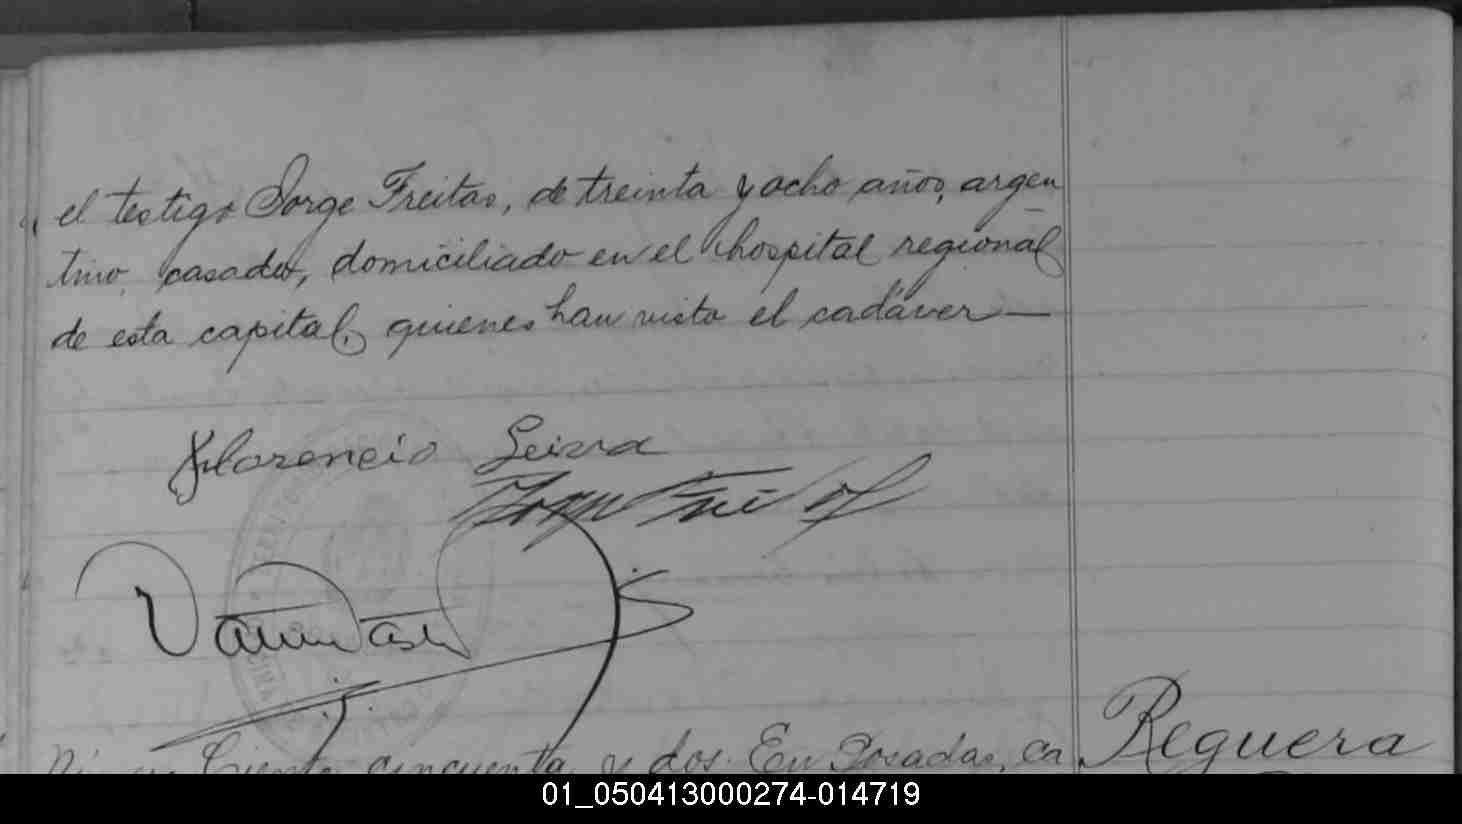 el testigo Jorge Freitas, de treinta y ocho años, argen
tino, casado, domiciliado en el hospital regional
de esta capital, quienes han visto el cadáver—
Florencio Leiva
ciento cincuenta y dos. En Posadas, ca
Reguera
01_050413000274-014719